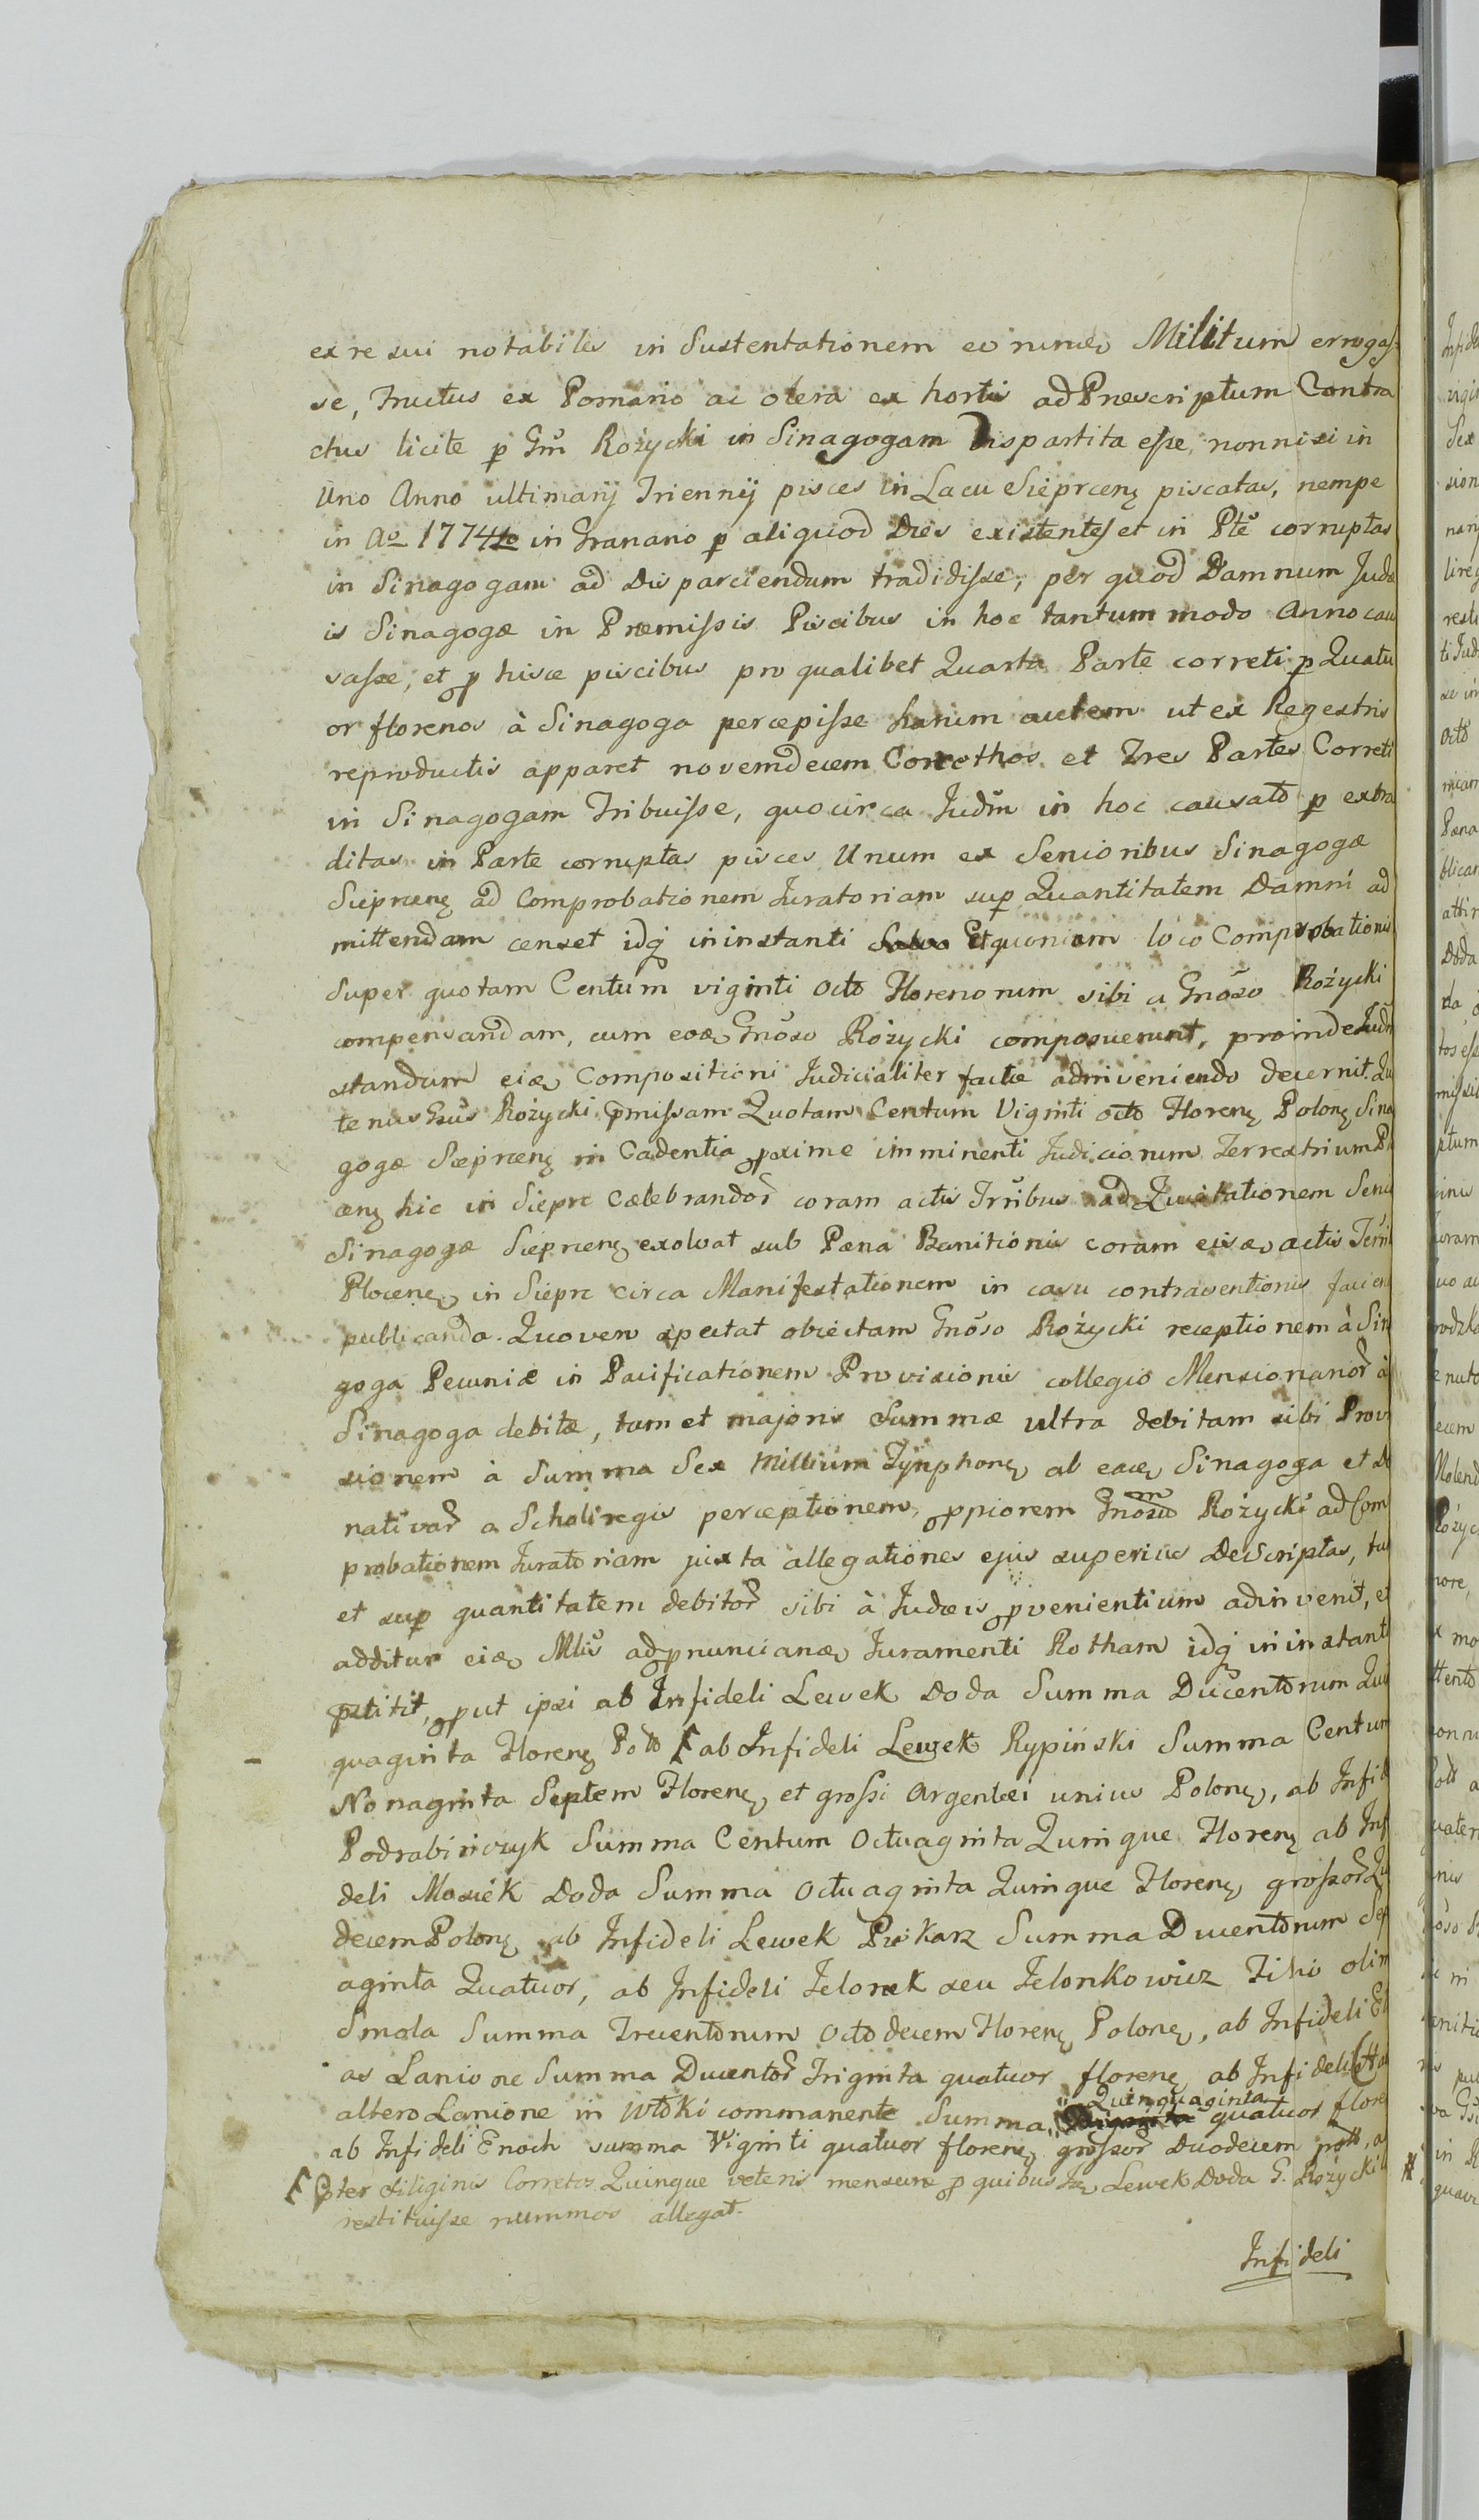 ex re sui notabiles in Sustentationem eorundem Militum errogaſ-
se, Fructus ex Pomario ac olera ex hortis ad Præscriptum Contra
ctus licite p Gm̃ Rożycki in Sinagogam Dispartita eſse, nonnisi in
Uno Anno ultimarij Triennij pisces in Lacu Sieprcenę piscatas, nempe
in Ao 1774to in Granario p aliquod Dies existentes et in Pte corruptas
in Sinagogam ad Disparciendum tradidiſse, per quod Damnum Judæ
is Sinagogæ in Præmiſsis Piscibus in hoc tantum modo Anno cau
saſse, et p hisce piscibus pro qualibet Quarta Parte correti p Quatu
or florenos à Sinagoga percepiſse harum autem ut ex Regestris
reproductis apparet novemdecem Corethos et Tres Partes Correti
in Sinagogam Tribuiſse, quocirca Judm̃ in hoc causato p extra
ditas in Parte corruptas pisces Unum ex Senioribus Sinagogæ
Sieprcenę ad Comprobationem Juratoriam sup Quantitatem Damni ad
mittendam censet idq in instanti Et quoniam loco Comprobationis
Super quotam Centum viginti octo Florenorum sibi a Gnõso Rożycki
compensandam, cum eoæ Gnõso Rożycki composuerunt, proinde Judm̃
standum eiæ Compositioni Judicialiter factæ adinveniendo decernit. Qu
tenus Gsus Rożycki pmiſsam Quotam Centum Viginti octo Florenę Polonę Sina
gogæ Sieprcenę in Cadentia pxime imminenti Judiciorum Terrestrium Pl
cenę hic in Sieprc Cælebrandor coram actis Trr̃ibus ad Quietationem Senio
Sinagogæ Sieprcenę exolvat sub Pæna Banitionis coram eisæ actis Terri
Plocenę in Sieprc circa Manifestationem in casu contraventionis facien
publicanda. Quo vero spectat obiectam Gnõso Rożycki receptionem à Sin
goga Pecuniæ in Pacificationem Provisionis collegio Mensionarior à
Sinagoga debitæ, tam et majoris Summæ ultra debitam sibi Provi
sionem à Summa Sex Millium Tynphonę ab eaæ Sinagoga et Do
nativar a Scholiregis perceptionem, ppiorem Gnõsum Rożycki ad Com
probationem Juratoriam juxta allegationes ejus superius Descriptas, ta
et sup quantitatem debitor sibi à Judæis pvenientium adinvenit, et
additur eiæ Mlis ad pnuncianæ Juramenti Rotham idq in instanti
petitit, put ipsi ab Infideli Lewek Doda Summa Ducentorum Qui
quaginta Florenę Polo ab Infideli Lewek Rypiński Summa Centum
Nonaginta Septem Florenę et groſsi Argentei unius Polonę, ab Infide
Podrabińczyk Summa Centum Octuaginta Quinque Florenę ab Inf
deli Mosiek Doda Summa Octuaginta Quinque Florenę groſsor Qu
decem Polonę ab Infideli Lewek Piekarz Summa Ducentorum Sep
aginta Quatuor, ab Infideli Jelonek seu Jelonkowicz Filio olim
Smola Summa Trecentorum Octodecem Florenę Polonę, ab Infideli El
as Lanione Summa Ducentor Triginta quatuor florenę ab Infideli
altero Lanione in Wtoki commanente Summa Quinquaginta quatuor flore
ab Infideli Enoch summa Viginti quatuor florenę groſsor Duodecem polo, a
pter siliginis Corretos Quinque veteris mensuræ p quibus Lewek Doda G. Rożycki
restituiſse nummos allegat.
Infideli